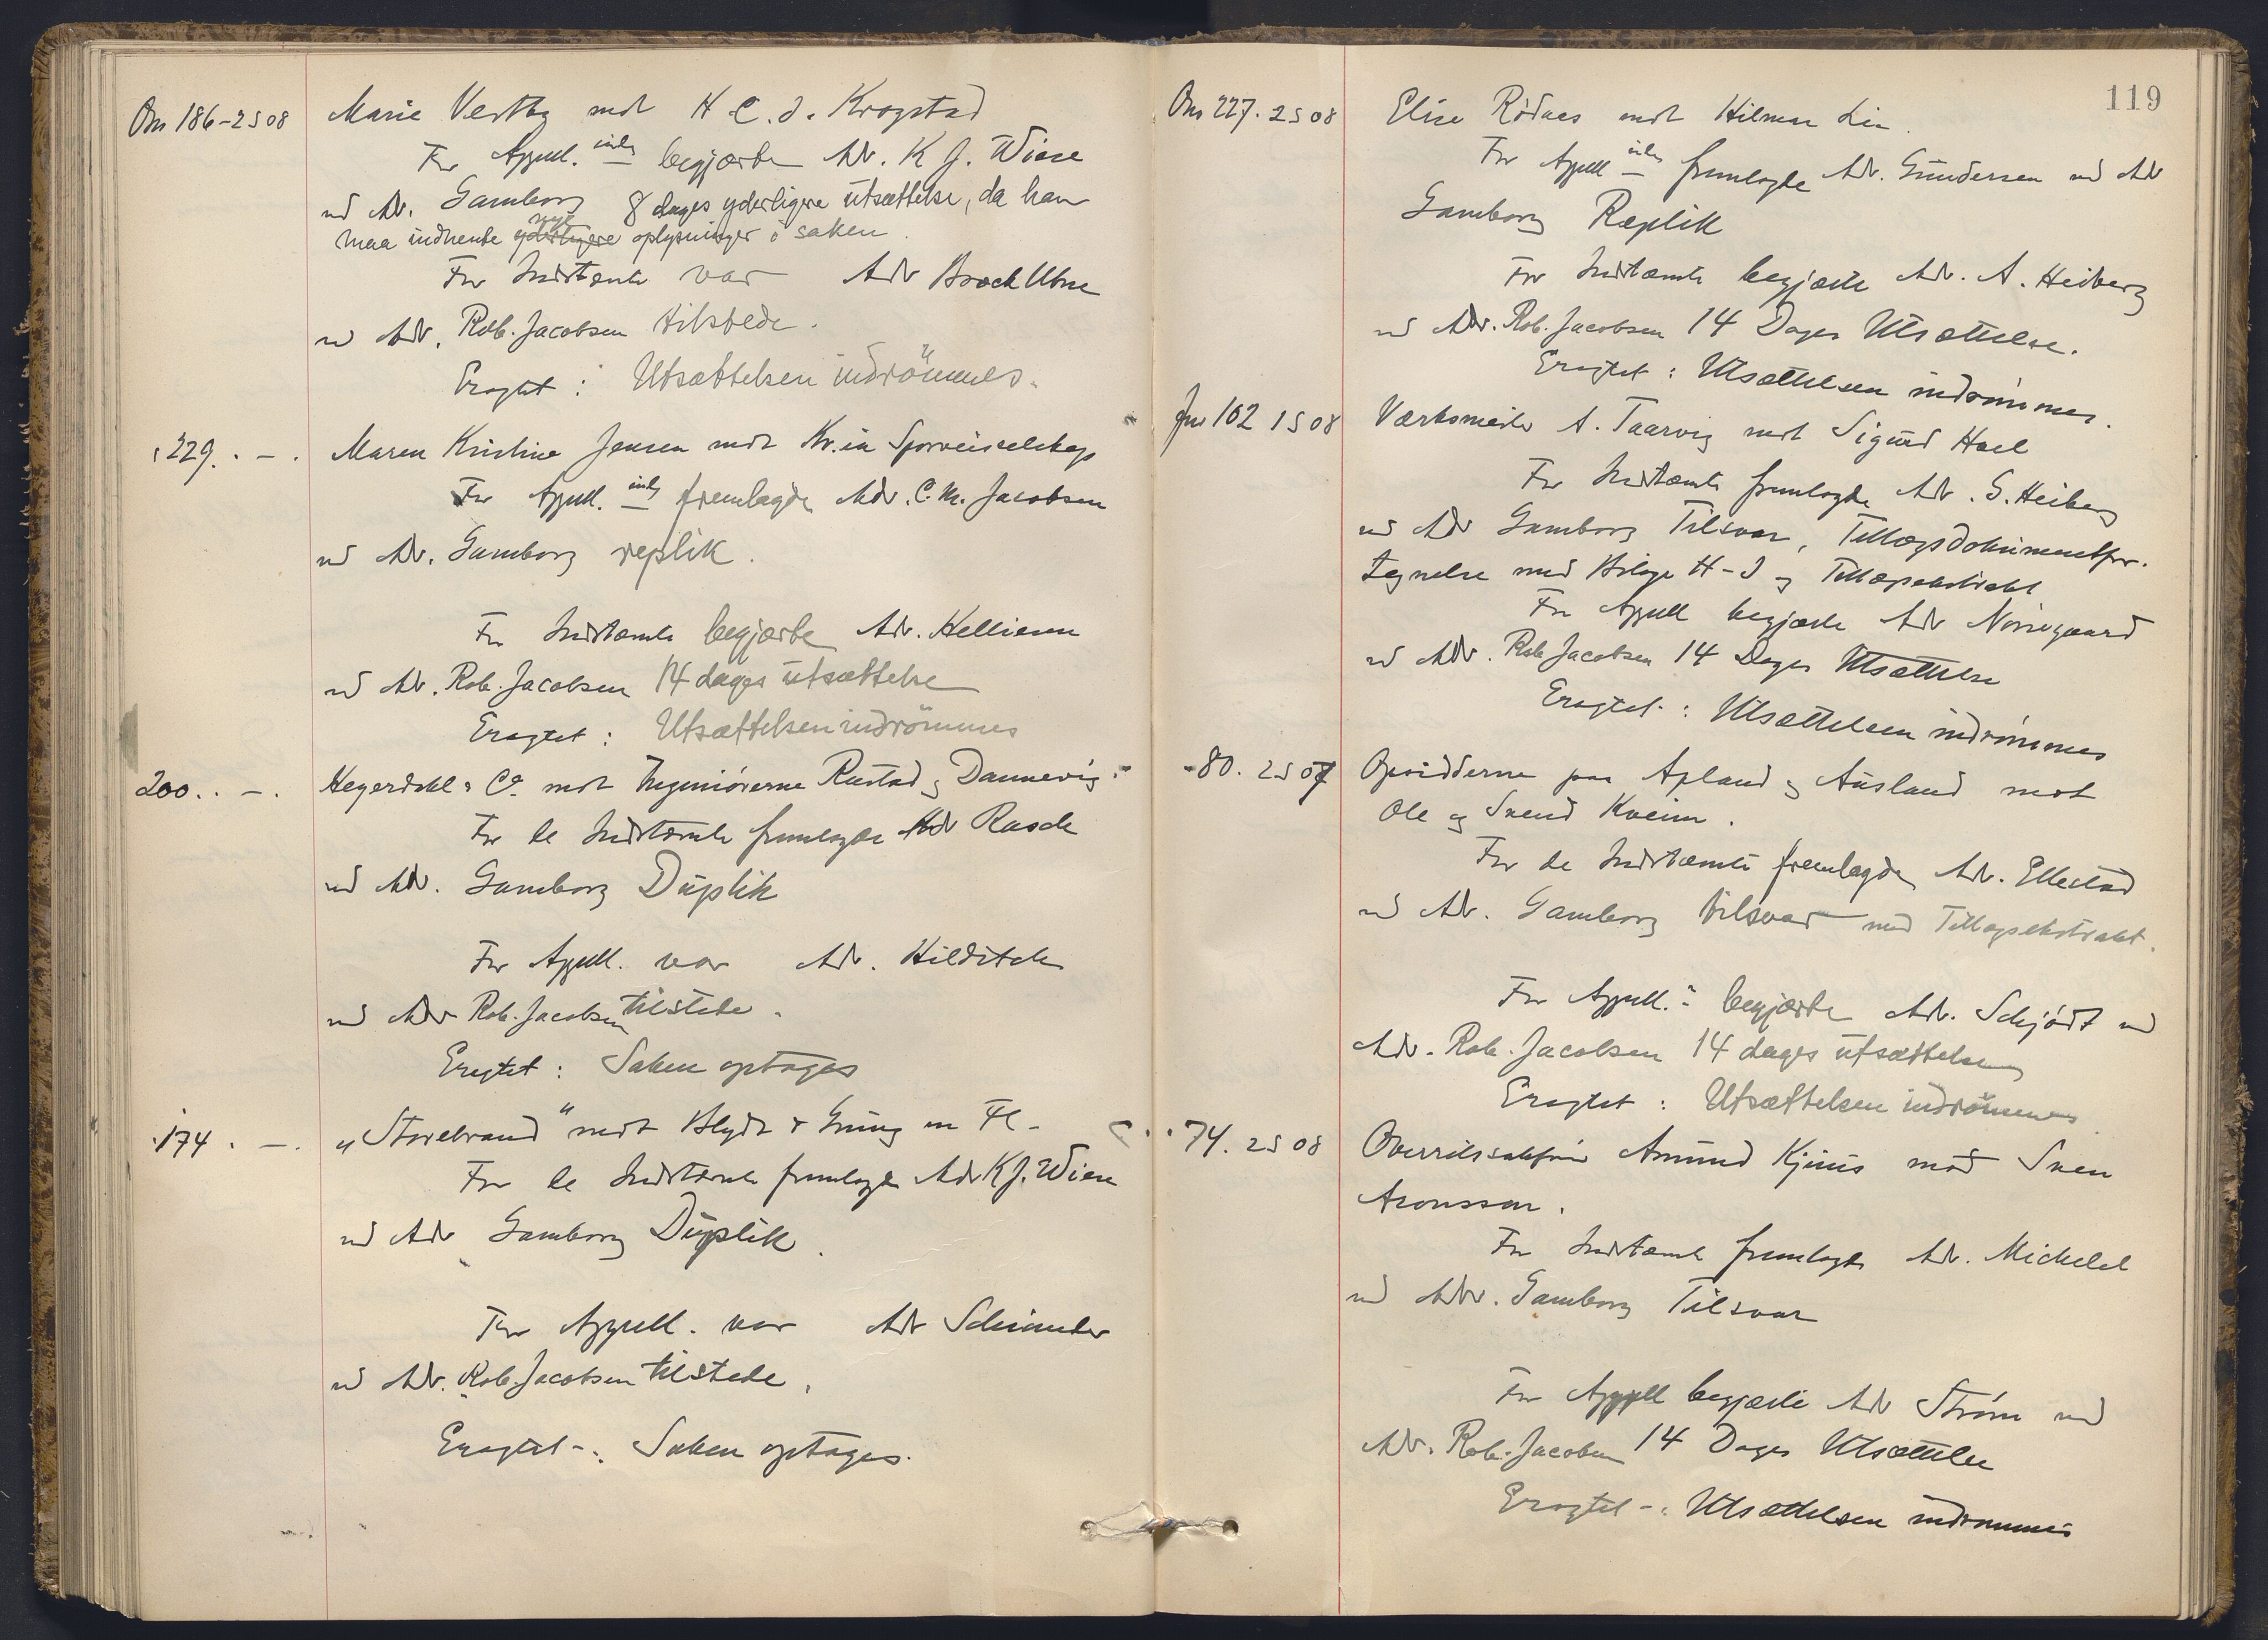 Ons 186-2S08 Marie Vestby mot H. C. J. Krogstad
For Appell. inds begjærte Adv. K J. Wiese
ved Adv. Gamborg 8 dages yderligere utsættelse, da han
maa indhente yderligere nye oplysninger i saken.
For Indstævnte var Adv Broch Utne
ved Adv. Rob. Jacobsen tilstede.
Eragtet: Utsættelsen indrömmes.
229. - . Maren Kristine Jensen mot Kr.ia Sporveisselskap
For Appell. inds fremlagde Adv. C. M. Jacobsen
ved Adv. Gamborg replik.
For Indstævnte begjærte Adv. Kelliesen
ved Adv. Rob. Jacobsen 14 dages utsættelse
Eragtet: Utsættelsen indrömmes
200. . - . Heyerdahl & Co. mot Ingeniörerne Rustad og Dannevig.
For de Indstævnte fremlagde Adv Rasch
ved Adv. Gamborg Duplik
For Appell. var Adv. Hilditch
ved Adv Rob. Jacobsen tilstede.
Eragtet: Saken optages
174. - . „Storebrand" mot Blydt & Grung m Fl.
For de Indstævnte fremlagde Adv K J. Wiese
ved Adv Gamborg Duplik.
For Appell. var Adv Schiander
ved Adv. Rob. Jacobsen tilstede.
Eragtet: Saken optages.
119
Ons 227. 2S08 Elise Rödnes mot Hilmar Lie.
For Appell inds fremlagde Adv. Gundersen ved Adv
Gamborg Replik
For Indstævnte begjærte Adv. A. Heiberg
ved Adv. Rob. Jacobsen 14 Dages Utsættelse.
Eragtet: Utsættelsen indrömmes.
102 1S08 Værksmester A. Taarvig mot Sigurd Hoel
For Indstævnte fremlagde Adv. S. Heiberg
ved Adv Gamborg Tilsvar, Tillægsdokumentfor-
tegnelse med Bilage H-J og Tillægsekstrakt
For Appell begjærte Adv Nörregaard
ved Adv. Rob Jacobsen 14 Dages Utsættelse
Eragtet: Utsættelsen indrömmes
80. 2S07 Opsidderne paa Apland og Ausland mot
Ole og Svend Kveim.
For de Indstævnte fremlagde Adv. Ellestad
ved Adv. Gamborg tilsvar med Tillægsekstrakt.
For Appell. begjærte Adv. Schjödt ved
Adv. Rob. Jacobsen 14 dages utsættelse
Eragtet: Utsættelsen indrömmes
74. 2S08 Overretssakförer Amund Kjuus mod Sven
Aronsson.
For Indstævnte fremlagde Adv. Michelet
ved Adv. Gamborg Tilsvar
For Appell begjærte Adv Ström ved
Adv. Rob. Jacobsen 14 Dages Utsættelse
Eragtet: Utsættelsen indrömmes